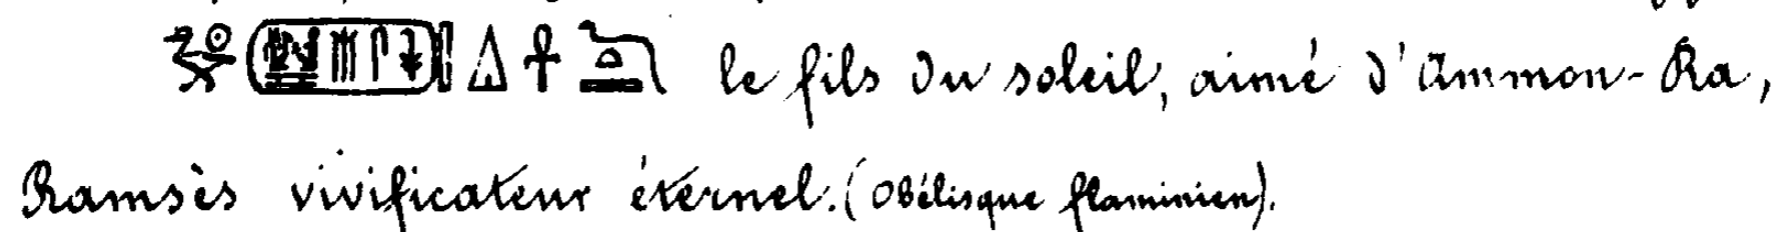 le fils du soleil, aimé d'Ammon-Ra,
Ramsès vivificateur éternel. (Obélisque flaminien).